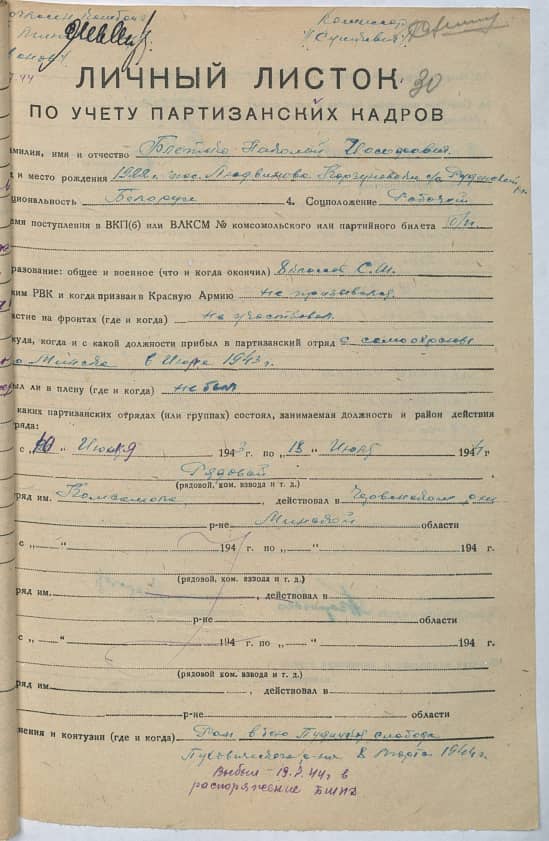 Комиссар
30
ЛИЧНЫЙ ЛИСТОК
ПО УЧЕТУ ПАРТИЗАНСКИХ КАДРОВ
амилия, имя и отчество
и место рождения 1922 г.
циональность Белорус 4. Соцположение Рабочий
емя поступления в ВКП(б) или ВЛКСМ № комсомольского или партийного билета б/п
разование: общее и военное (что и когда окончил) 8 классов С.Ш.
ким РВК и когда призван в Красную Армию не призывался
астие на фронтах (где и когда) не участвовал
куда, когда и с какой должности прибыл в партизанский отряд с
Минска в Июне 1943 г.
ыл ли в плену (где и когда) не был
каких партизанских отрядах (или группах) состоял, занимаемая должность и район действия
ряда:
с „10“ Июня 1943 г. по „15“ Июля 1944 г.
Рядовой
(рядовой, ком. взвода и т. д.)
ряд им. Комсомола, действовал в Червенском
р-не Минской области
с „ “ 194 г. по „ “ 194 г.
(рядовой, ком. взвода и т. д.)
ряд им. , действовал в
р-не области
с „ “ 194 г. по „ “ 194 г.
(рядовой, ком. взвода и т. д.)
ряд им. , действовал в
р-не области
нения и контузии (где и когда) Ран. в бою слобода
Пуховического р-на 8 марта 1944 г.
Выбыл 19.7.44 г. в
распоряжение БШПД